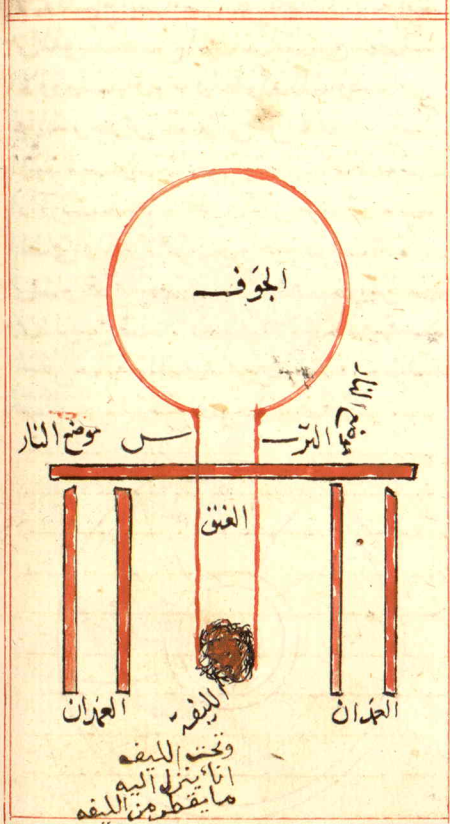 الجَوف
موضع النار
الترس
موضع النار
العنق
العمدان
العمدان
الليفة
وتحت الليفه
اناء ينزل اليه
ما يقطر من الليفه